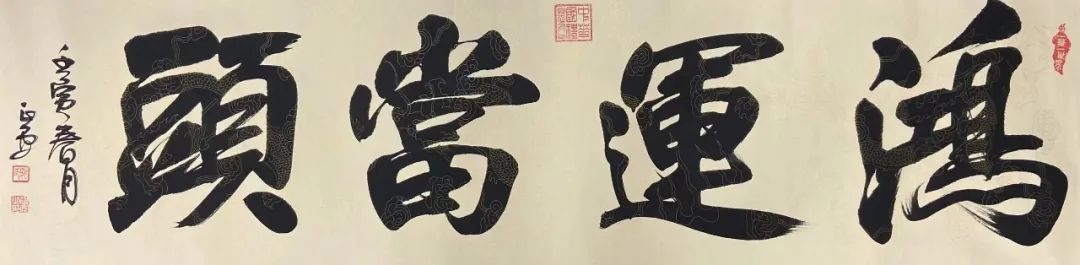 鴻運當頭
壬寅春月